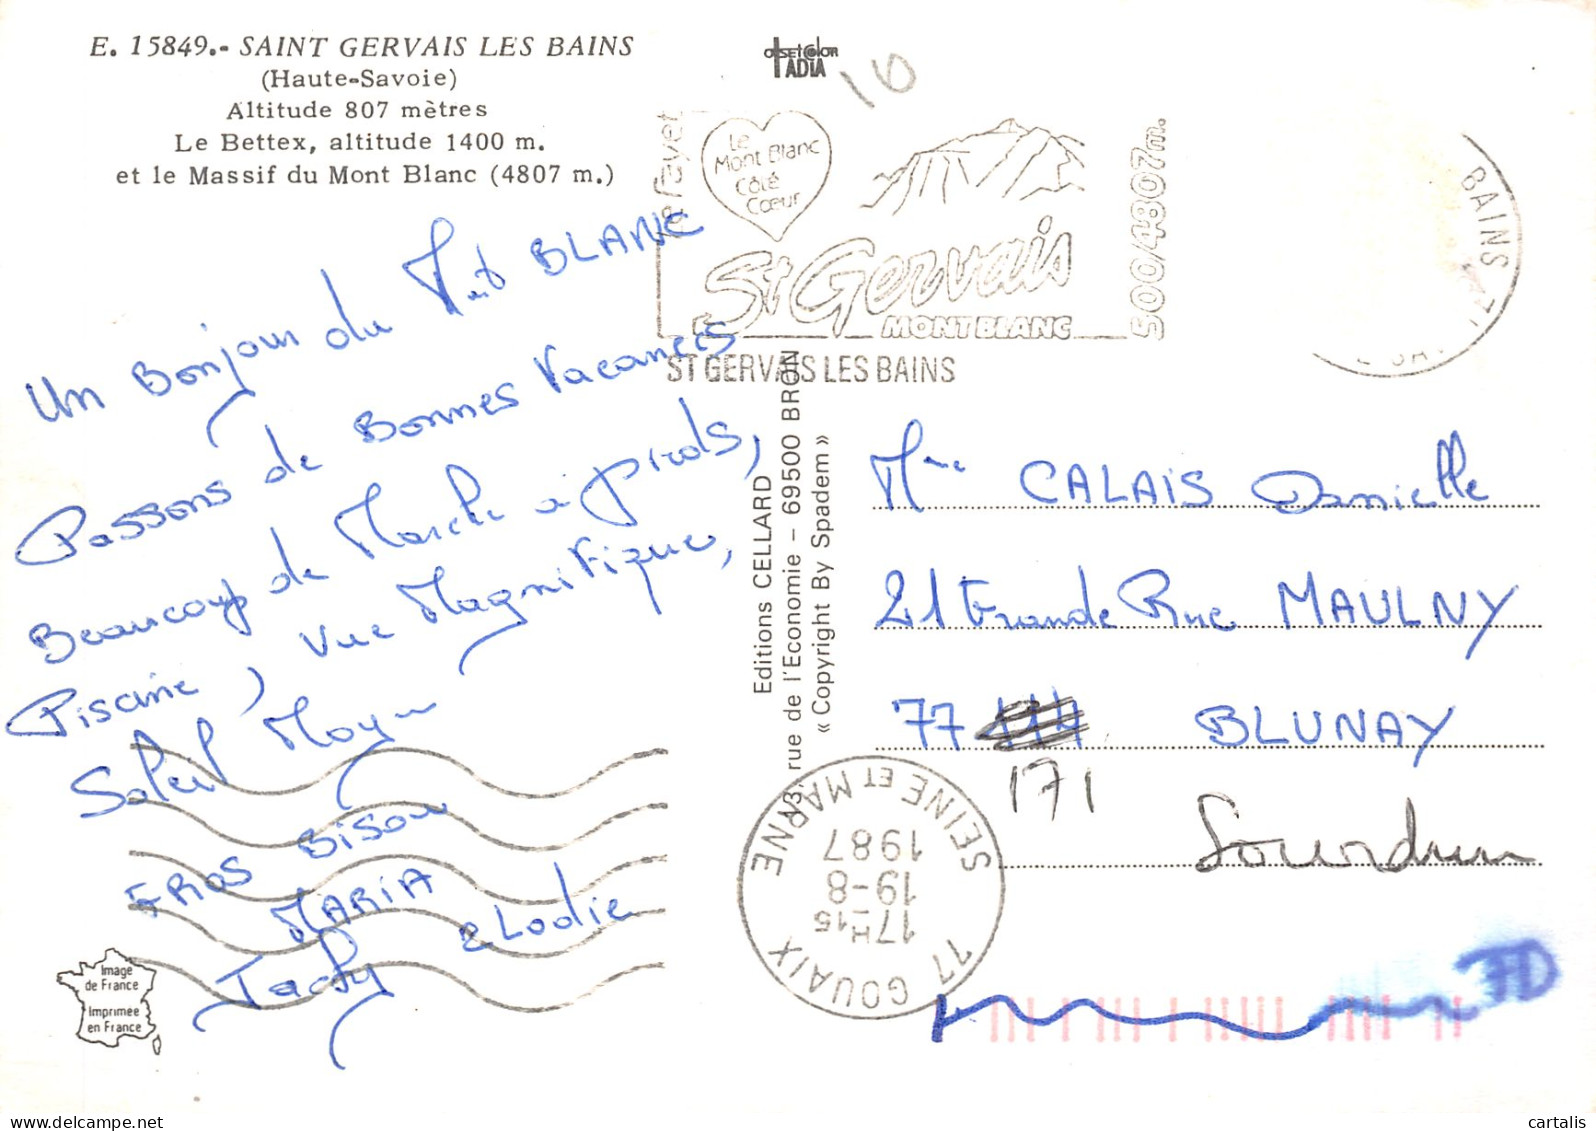 E. 15849.- SAINT GERVAIS LES BAINS
(Haute-Savoie)
Altitude 807 mètres
Le Bettex, altitude 1400 m.
et le Massif du Mont Blanc (4807 m.)
offsetcolor
IADIA
10
le fayet
Le
Mont Blanc
Côté
Cœur
St Gervais
MONT BLANC
500/4807m.
ST GERVAIS LES BAINS
BAINS
Un Bonjour du Mt BLANC
Passons de Bonnes Vacances
Beaucoup de Marche à pieds,
Piscine, Vue Magnifique,
Soleil Moyen
GROS Bisou
MARIA
Jacky elodie
Editions CELLARD
rue de l'Economie - 69500 BRON
« Copyright By Spadem »
Mme CALAIS Danielle
21 Grande Rue MAULNY
77 BLUNAY
171
Sourdun
77 GOUAIX
SEINE ET MARNE
17H15
19-8
1987
FD
Image
de France
Imprimée
en France
cartalis